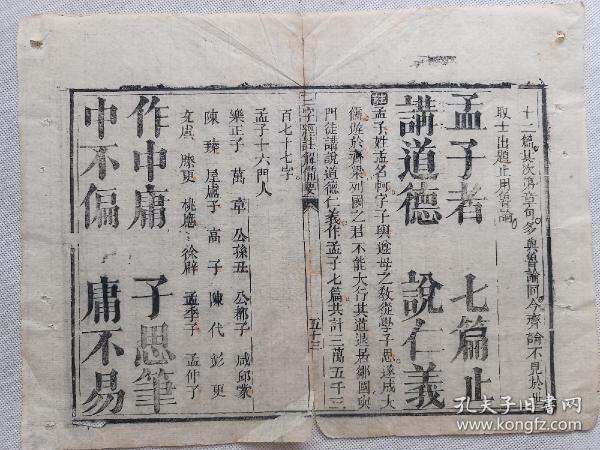 十二篇其次第章句多與魯論同今齊論不見於世
取士出題止用魯論
孟子者 七篇止
講道德 說仁義
註孟子姓孟名軻字子輿遵母之教從學子思遂成大
儒遊於齊梁列國之君不能大行其道退居鄒國與
門徒講說道德仁義作孟子七篇共計三萬五千三
百七十七字
孟子十六門人
三字經註解備要 五十三
樂正子 萬章 公孫丑 公都子 咸邱蒙
陳臻 屋廬子 高子 陳代 彭更
充虞 滕更 桃應 徐辟 孟季子 孟仲子
作中庸 子思筆
中不偏 庸不易
孔夫子旧书网
www.kongfz.com